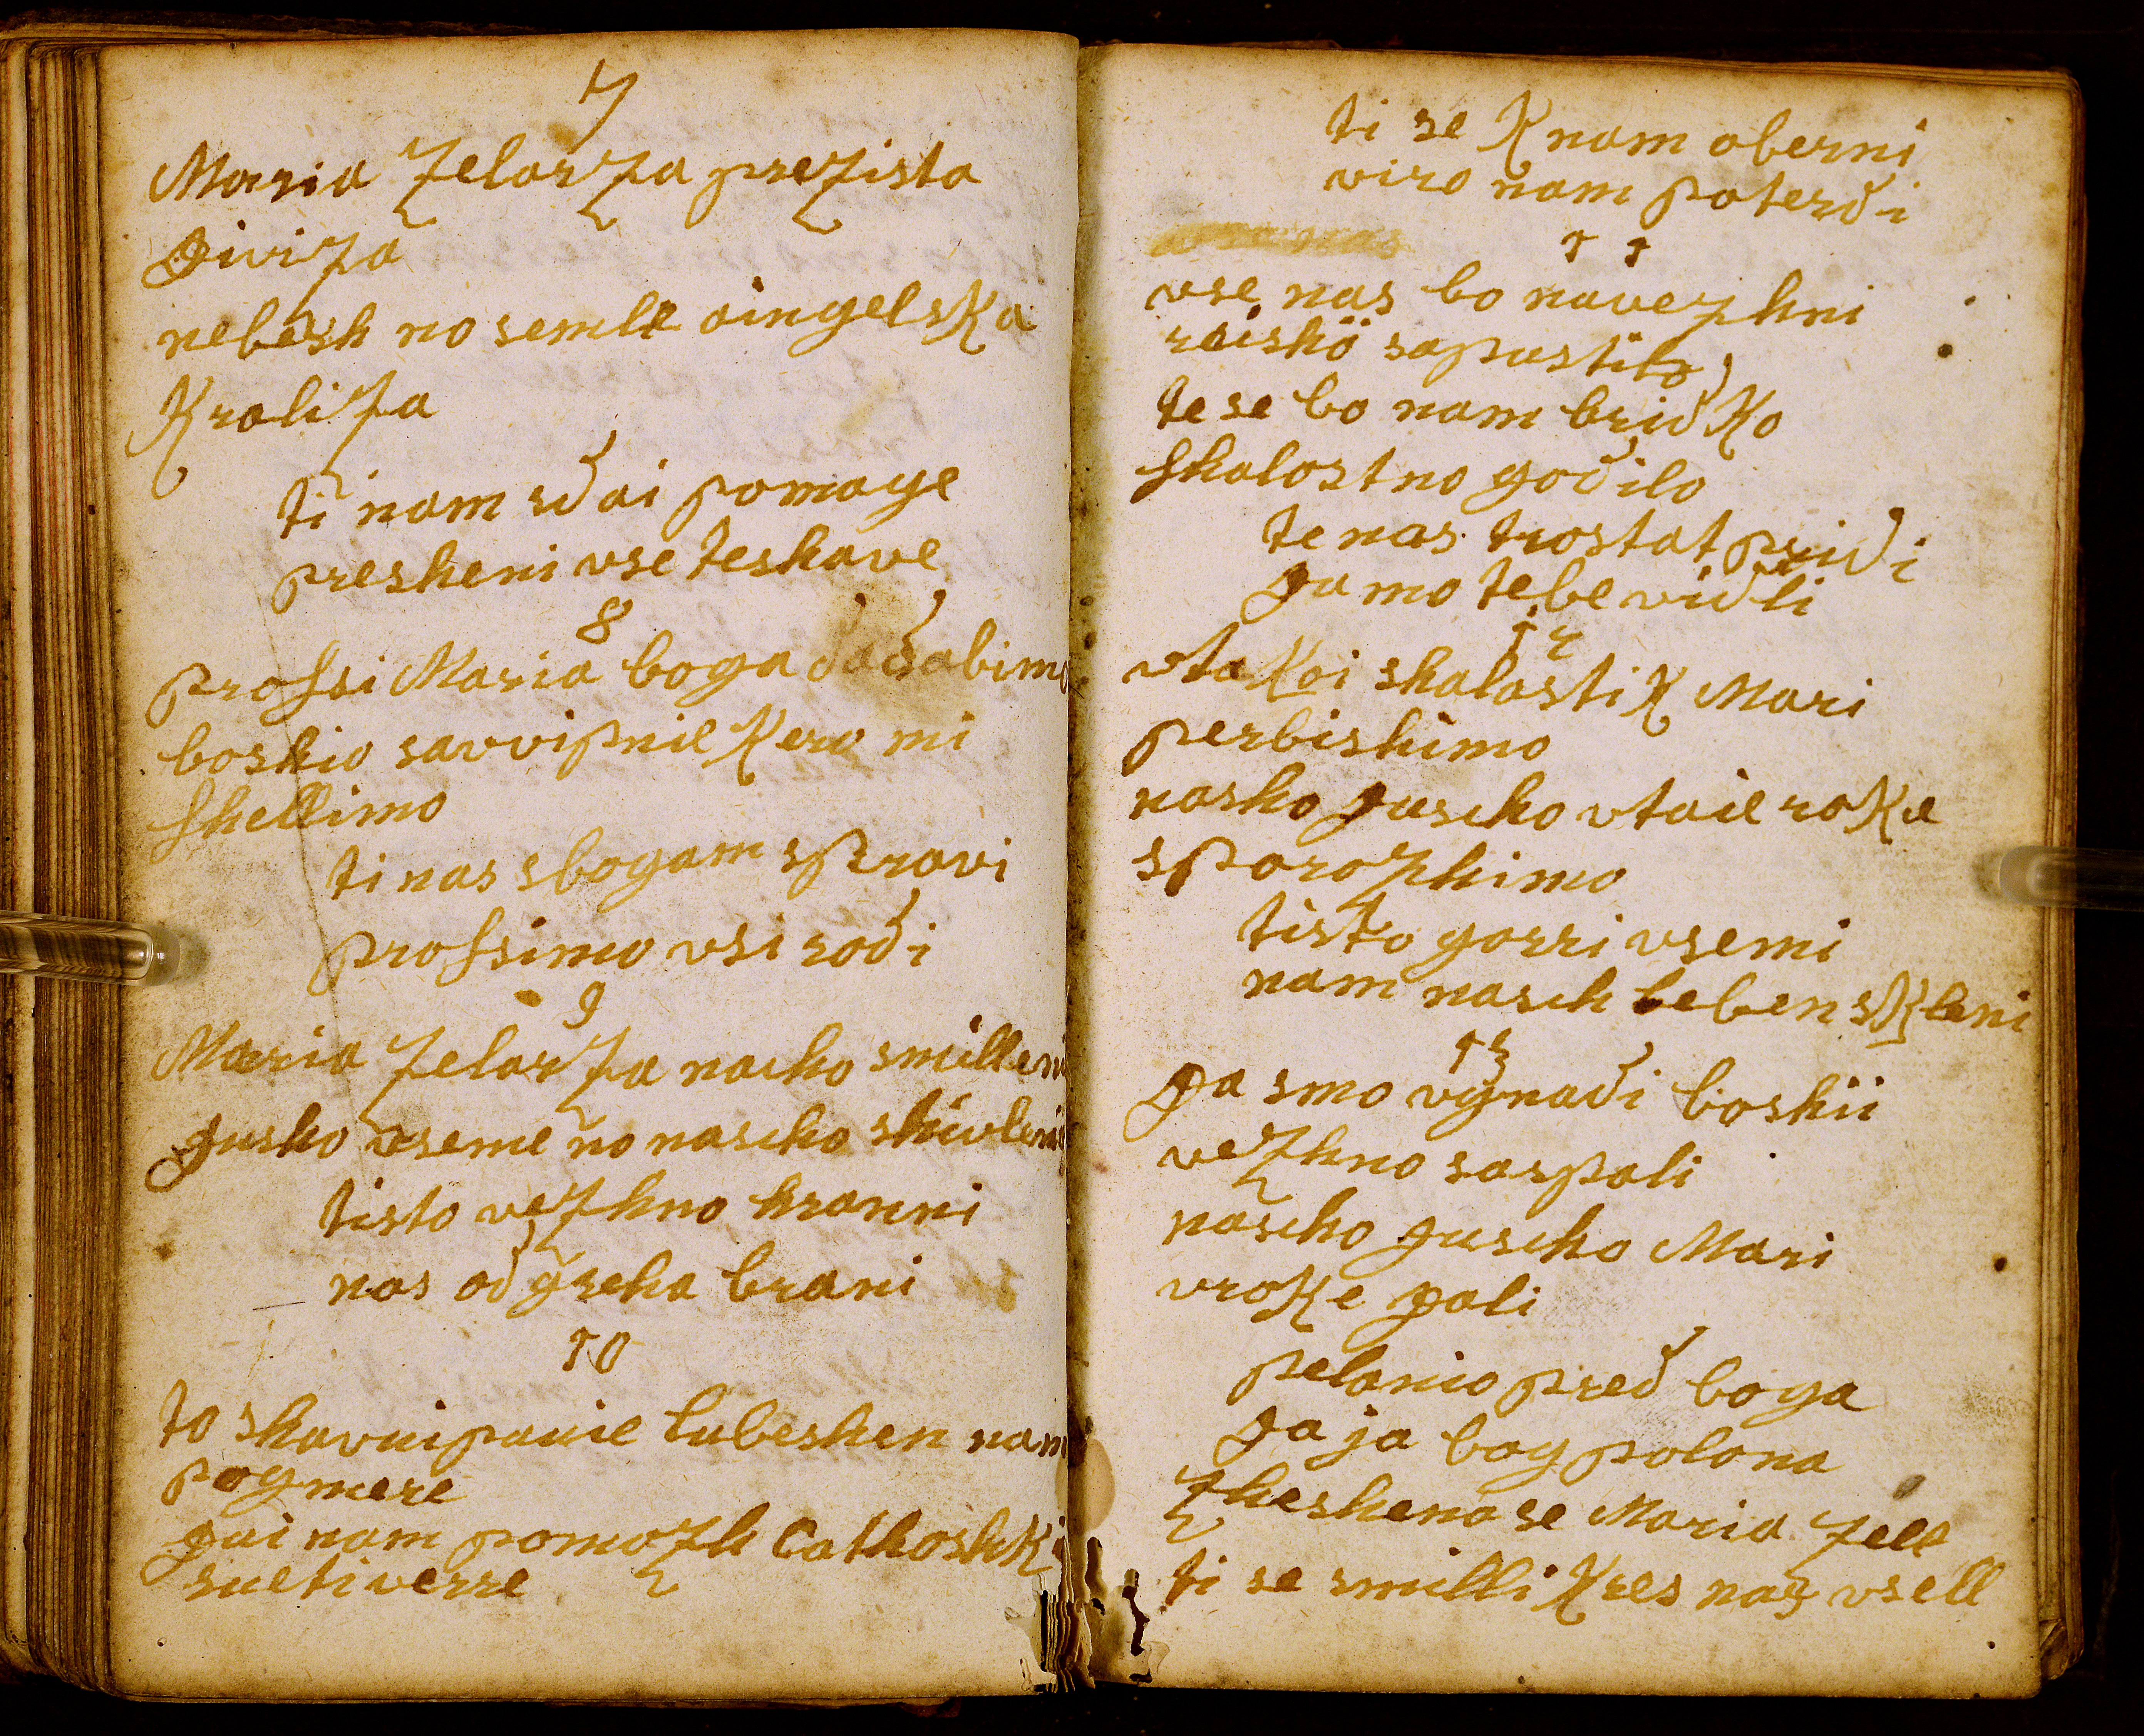 7
Maria Zelarza prezista
giviza
nebesh no semle aingelska
Kraliza
ti nam sdai pomage
presheni vse teshave
8
profsi Maria boga dadabimo
boskio savvipnie Kero mi
shellimo
ti nas sbogam spravi
profsimo vsi rodi
9
Maria Zelarza nasho smilleni
gusho vseme no nascho shivleni
tisto vezhno hranni
nas od greha brani
10
to shavui panie lubeshen nam
pogmere
gai nam pomozh Cathoshki
sueti verre
ti se K nam oberni
viro nam poterdi
11
vse nas bo navezhni
raishö sapustilo
te se bo nam bridko
shalostno godilo
te nas trostat pridi
ga mo tebe vidli
12
vta Koi shalasti K Mari
perbishimo
nasho guscho vtaie roke
sporozhimo
tisto gorri vsemi
nam nasch leben skleni
13
ga smo vgnadi boshii
vezhno saspali
nascho guscho Mari
vroke gali
pelanio pred boga
ga ja bog polona
zheshena se Maria Zell
ti se smilli Kres nas vsell